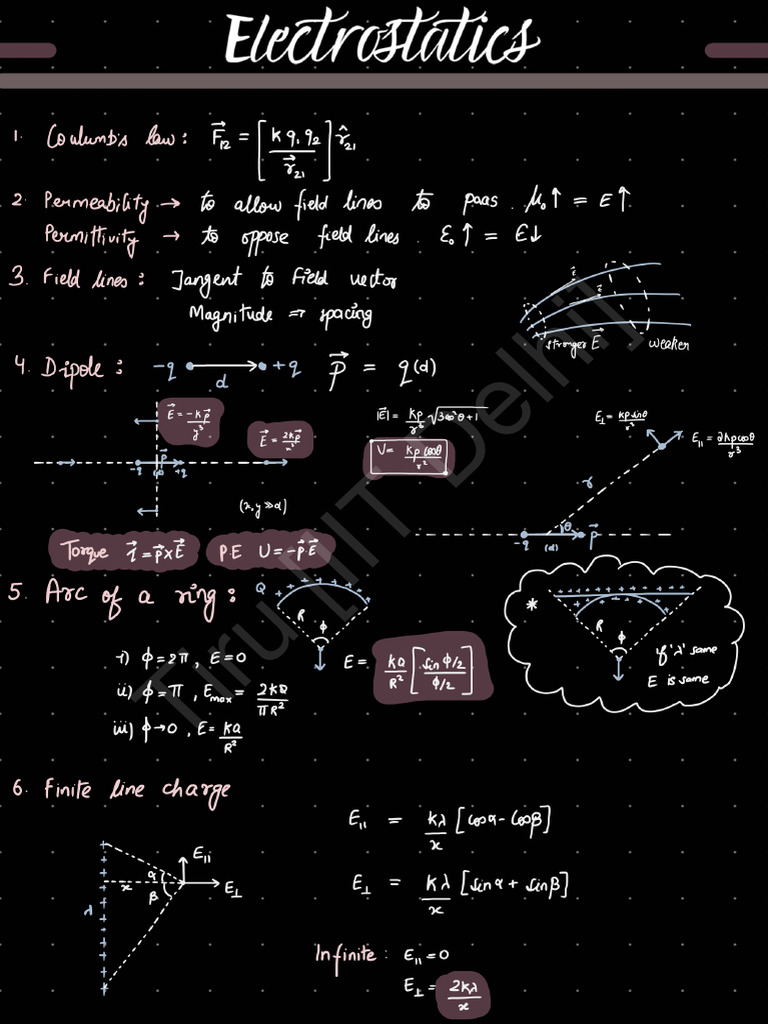 Electrostatics
1. Coulumb's law: F⃗₁₂ = [k q₁ q₂ / r⃗₂₁] r̂₂₁
2. Permeability → to allow field lines to pass. μ₀↑ = E↑
Permittivity → to oppose field lines. ε₀↑ = E↓
3. Field lines: Tangent to field vector
Magnitude ⇒ spacing
stronger E⃗ weaker
4. Dipole: -q d +q p⃗ = q(d)
E⃗ = -kp⃗/y³
E⃗ = 2kp⃗/x³
|E⃗| = kp/r³ √(3cos²θ+1)
V = kp cosθ/r²
E⊥ = kp sinθ/r³
E∥ = 2kp cosθ/r³
r
θ
-q p⃗ (d) +q
(x, y ≫ d)
-q (d) p⃗
Torque τ⃗ = p⃗ × E⃗
P.E U = -p⃗ E⃗
5. Arc of a ring: Q R ϕ
i) ϕ = 2π, E = 0
ii) ϕ = π, Emax = 2kQ/πR²
iii) ϕ → 0, E = kQ/R²
E = kQ/R² [sin ϕ/2 / ϕ/2]
* R ϕ
if 'λ' same
E is same
6. Finite line charge
λ x α β E∥ E⊥
E∥ = kλ/x [cosα - cosβ]
E⊥ = kλ/x [sinα + sinβ]
Infinite: E∥ = 0
E⊥ = 2kλ/x
Tiru [IIT Delhi]